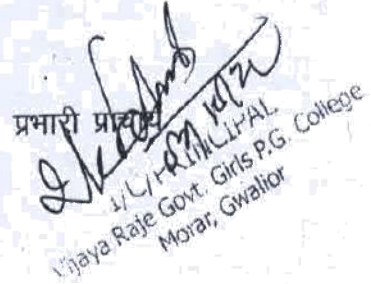 प्रभारी प्राचार्य
I/C/PRINCIPAL
Vijaya Raje Govt. Girls P.G. College
Morar, Gwalior